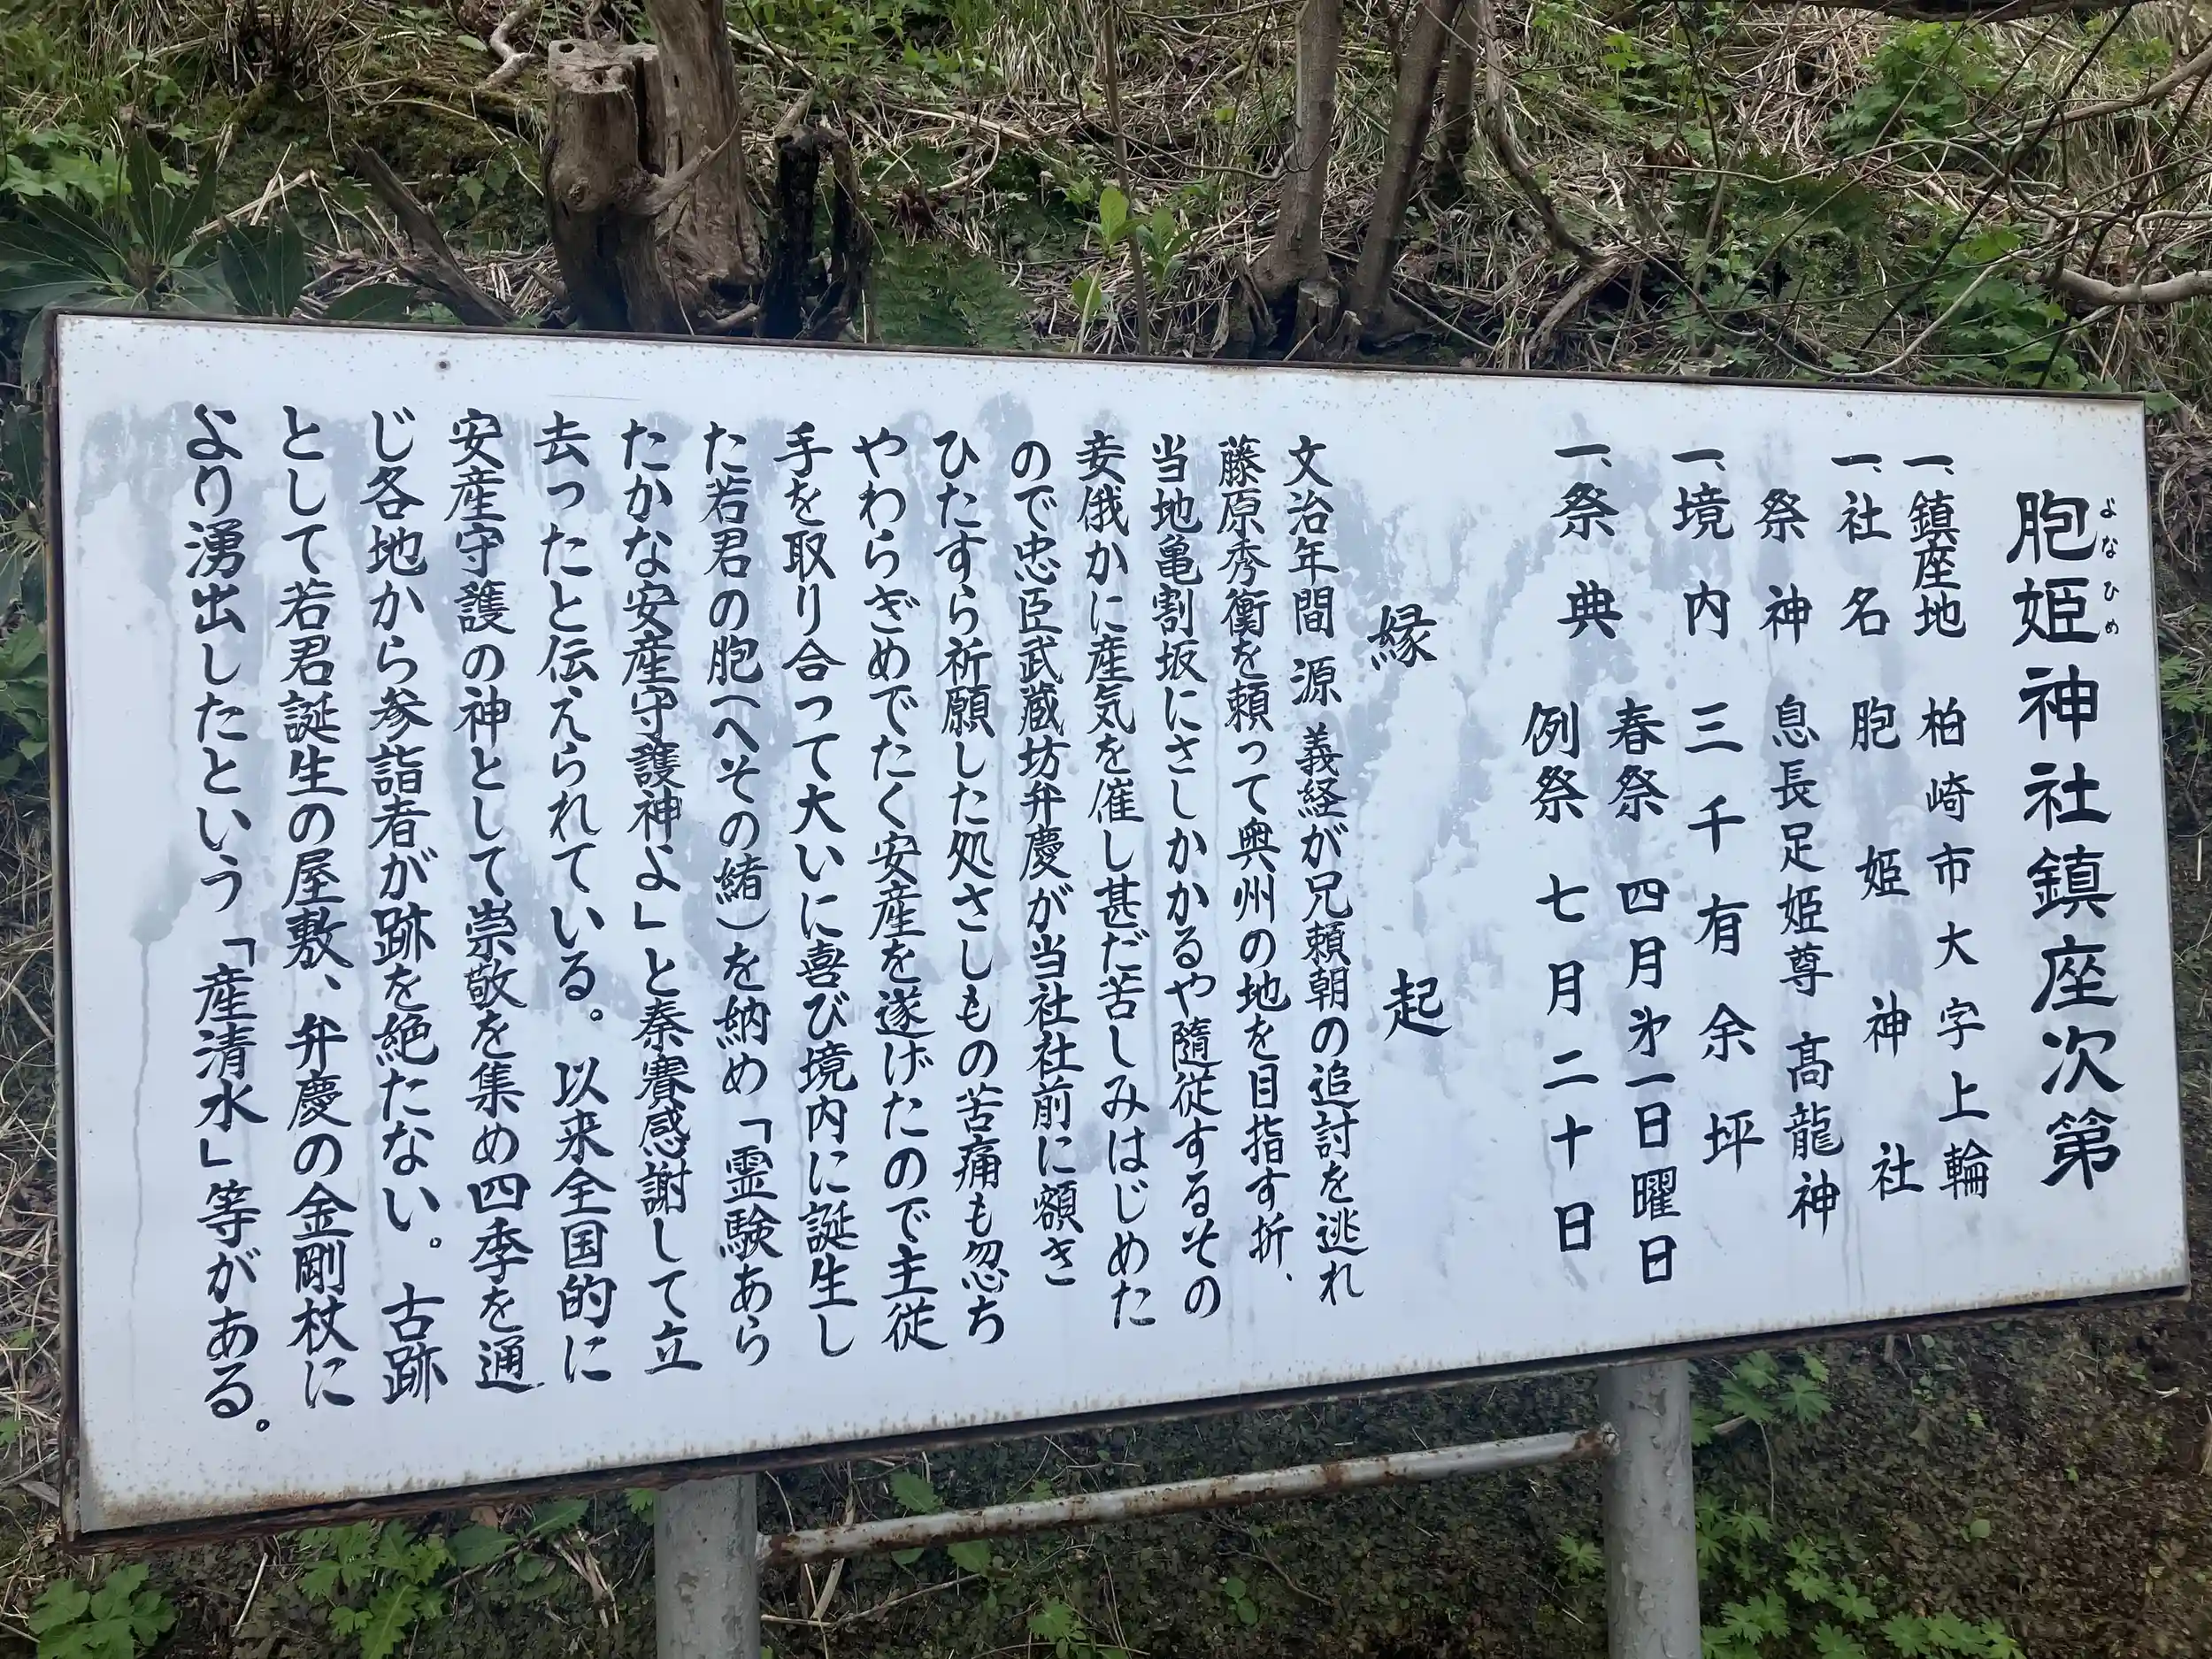 胞姫神社鎮座次第
よなひめ
一、鎮座地 柏崎市大字上輪
一、社名 胞姫神社
祭神 息長足姫尊 高龍神
一、境内 三千有余坪
一、祭典 春祭 四月㐧一日曜日
例祭 七月二十日
縁起
文治年間 源 義経が兄頼朝の追討を逃れ
藤原秀衡を頼って奥州の地を目指す折、
当地亀割坂にさしかかるや随従するその
妾俄かに産気を催し甚だ苦しみはじめた
ので忠臣武蔵坊弁慶が当社社前に額き
ひたすら祈願した処さしもの苦痛も忽ち
やわらぎめでたく安産を遂げたので主従
手を取り合って大いに喜び境内に誕生し
た若君の胞(へその緒)を納め「霊験あら
たかな安産守護神よ」と奏賽感謝して立
去ったと伝えられている。以来全国的に
安産守護の神として崇敬を集め四季を通
じ各地から参詣者が跡を絶たない。古跡
として若君誕生の屋敷、弁慶の金剛杖に
より湧出したという「産清水」等がある。